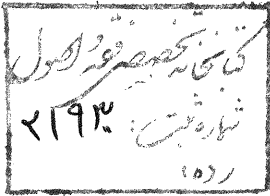 کتابخانه تخصصی فقه و اصول
شماره ثبت: ۲۱۹۳۰
رده: